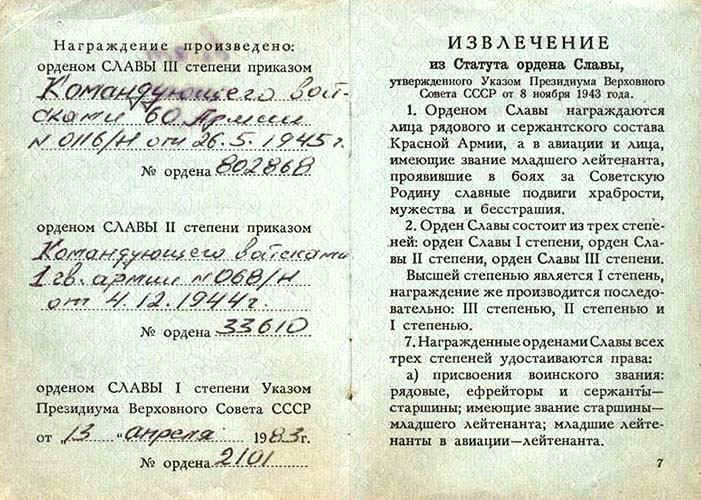 Награждение произведено:
орденом СЛАВЫ III степени приказом
Командующего вой-
сками 60 Армии
N 0116/Н от 26.5.1945г.
№ ордена 802868
орденом СЛАВЫ II степени приказом
Командующего войсками
1 гв. армии N 068/Н
от 4.12.1944г.
№ ордена 33610
орденом СЛАВЫ I степени Указом
Президиума Верховного Совета СССР
от „13 “ апреля 1983г.
№ ордена 2101
ИЗВЛЕЧЕНИЕ
из Статута ордена Славы,
утвержденного Указом Президиума Верховного
Совета СССР от 8 ноября 1943 года.
1. Орденом Славы награждаются
лица рядового и сержантского состава
Красной Армии, а в авиации и лица,
имеющие звание младшего лейтенанта,
проявившие в боях за Советскую
Родину славные подвиги храбрости,
мужества и бесстрашия.
2. Орден Славы состоит из трех степе-
ней: орден Славы I степени, орден Сла-
вы II степени, орден Славы III степени.
Высшей степенью является I степень,
награждение же производится последо-
вательно: III степенью, II степенью и
I степенью.
7. Награжденные орденами Славы всех
трех степеней удостаиваются права:
а) присвоения воинского звания:
рядовые, ефрейторы и сержанты—
старшины; имеющие звание старшины—
младшего лейтенанта; младшие лейте-
нанты в авиации—лейтенанта.
7